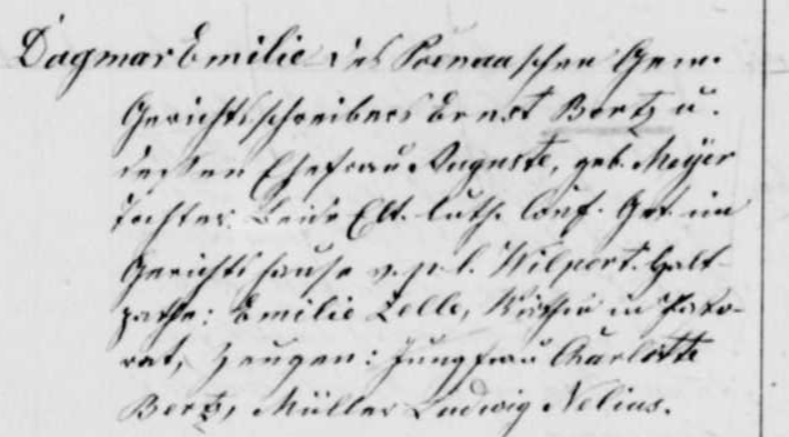 Dagmar Emilie des Poenauschen Gem.
Gerichtsschreibers Ernst Bertz u.
dessen Ehefrau Auguste, geb. Meyer
Tochter. Beide Elt. luth. Conf. Get. im
Gerichtshause v. p. l. Wilpert. Halt-
pathe: Emilie Zelle, in Pasto-
rat, Zeugen: Jungfrau Charlotte
Bertz, Müller Ludwig Nelius.